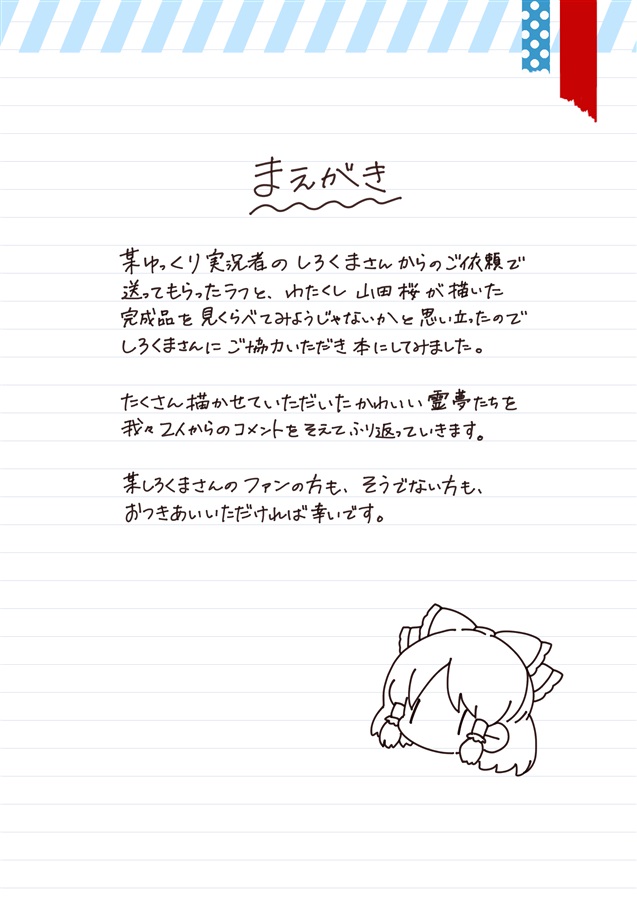 まえがき
某ゆっくり実況者のしろくまさんからのご依頼で
送ってもらったラフと、わたくし山田桜が描いた
完成品を見くらべてみようじゃないかと思い立ったので
しろくまさんにご協力いただき本にしてみました。
たくさん描かせていただいたかわいい霊夢たちを
我々2人からのコメントをそえてふり返っていきます。
某しろくまさんのファンの方も、そうでない方も、
おつきあいいただければ幸いです。